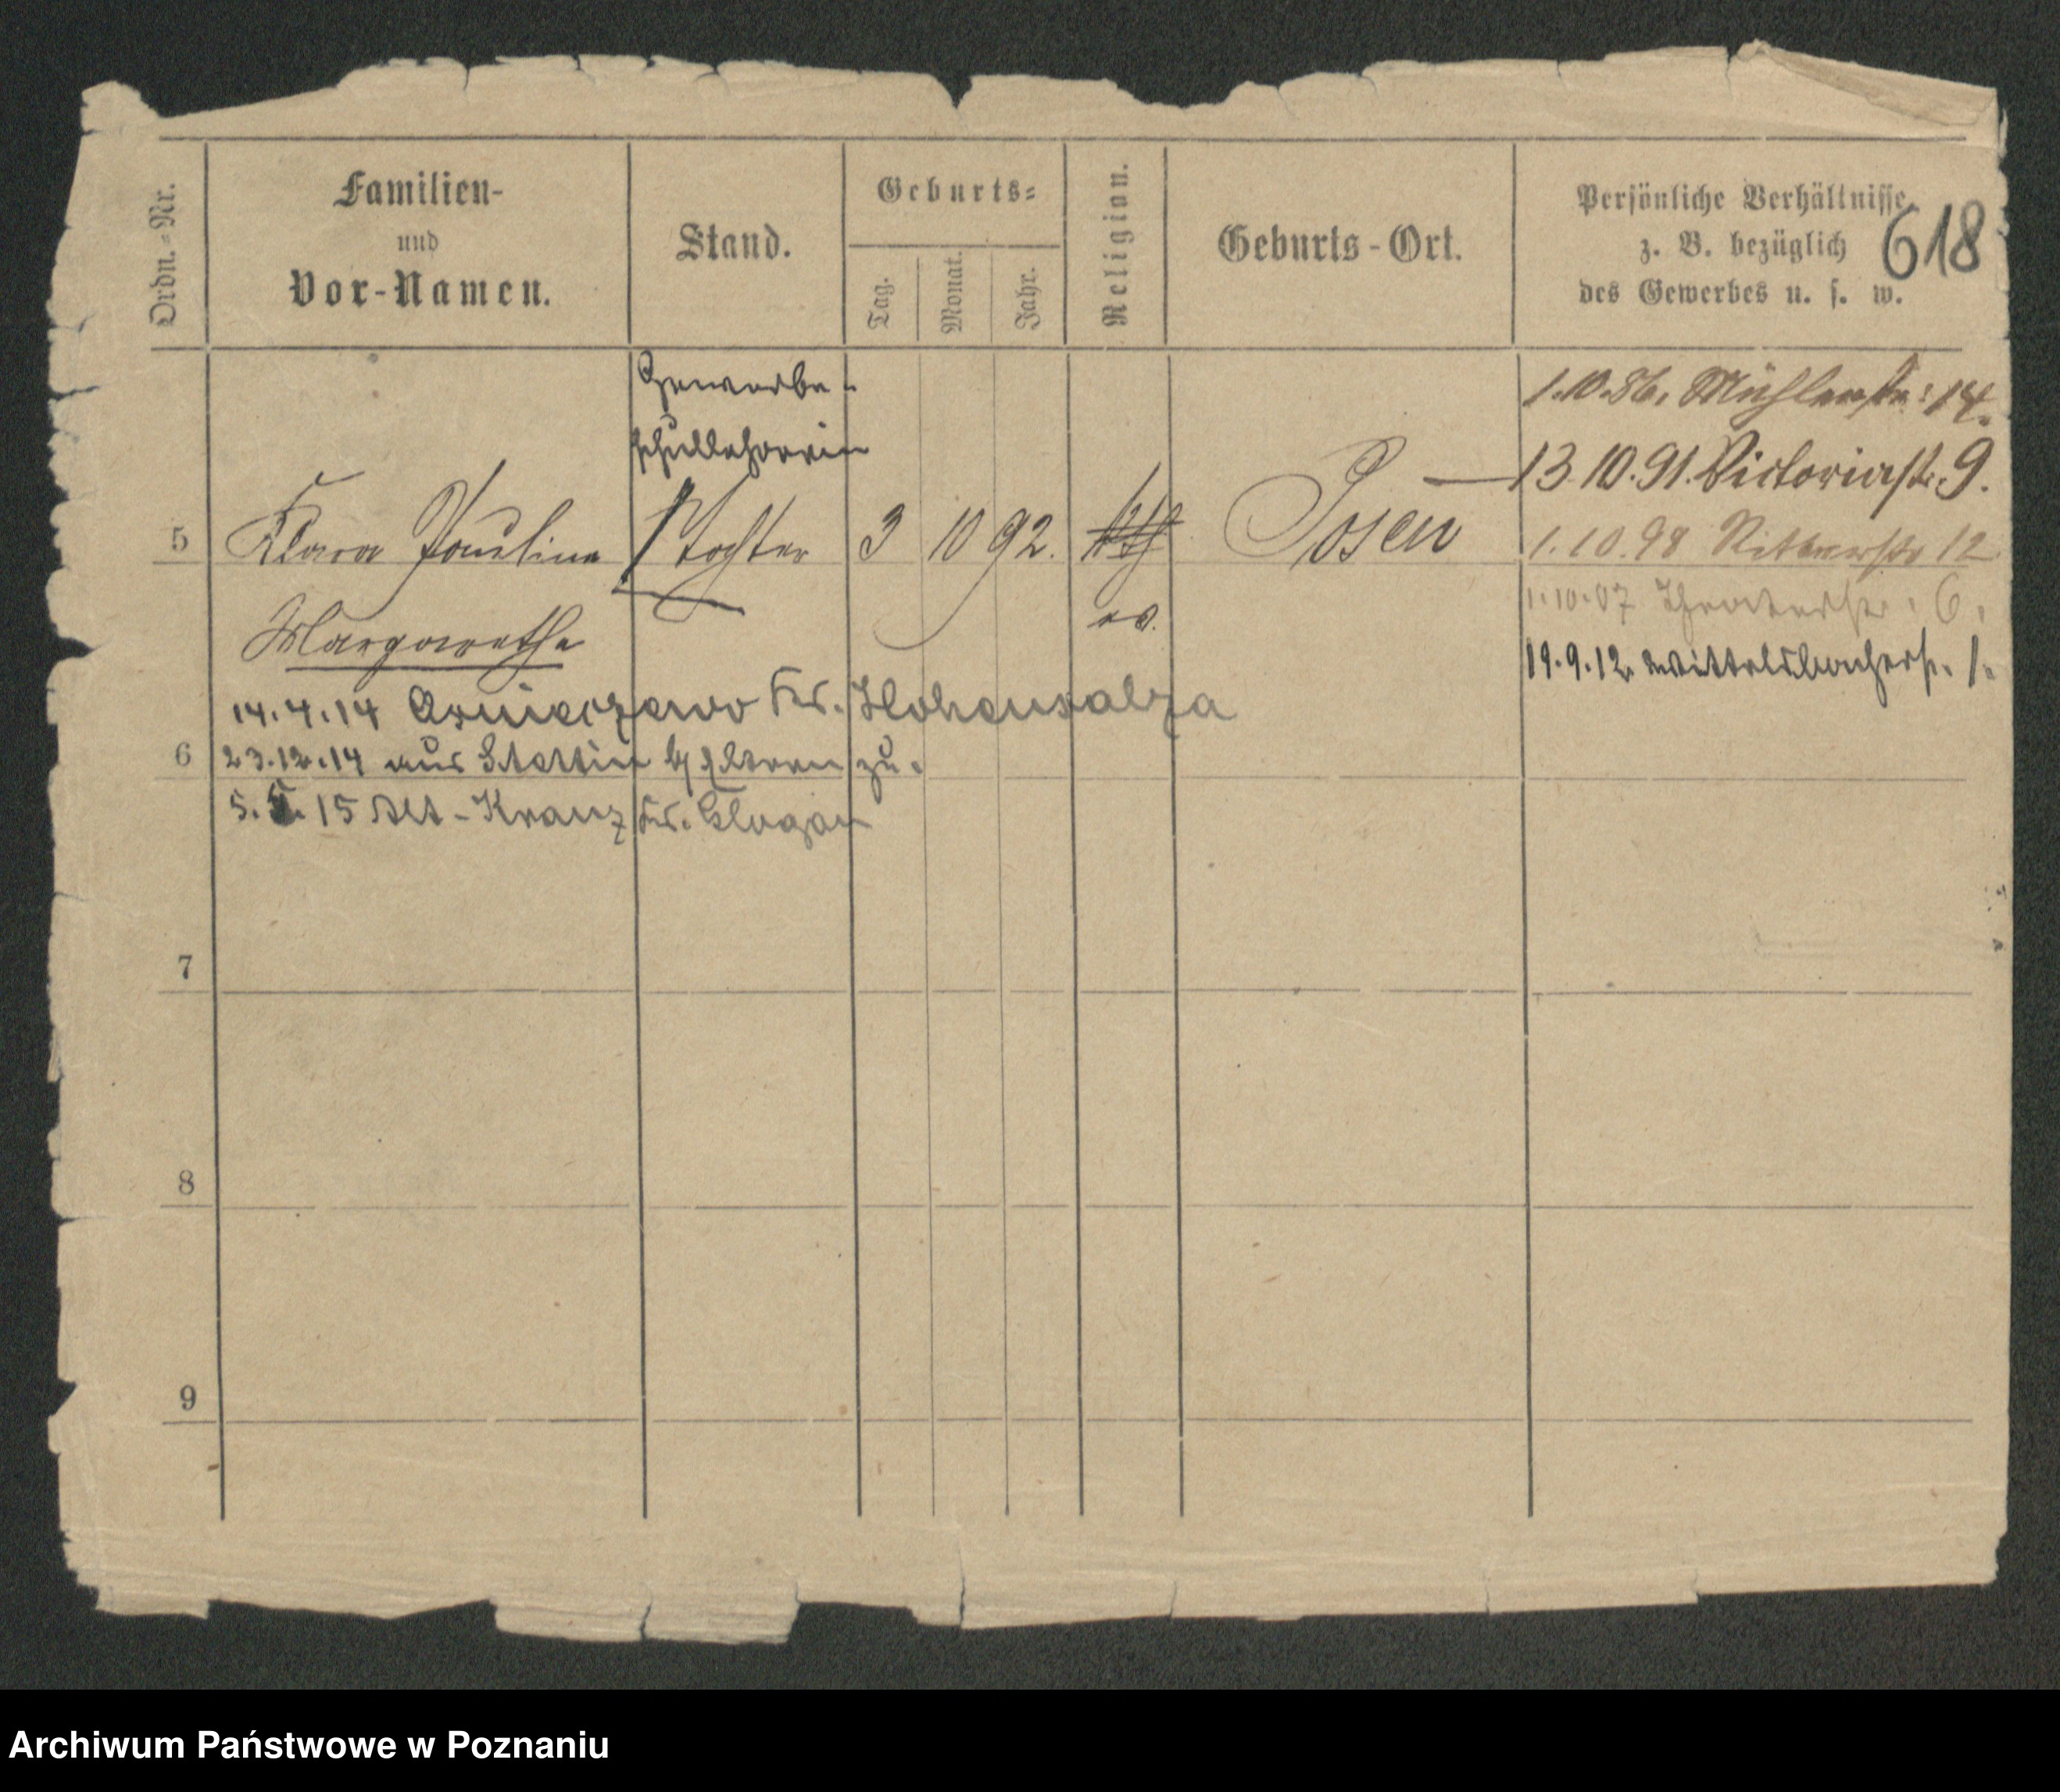 Ordn.=Nr.
Familien-
und
Vor-Namen.
Stand.
Geburts=
Tag.
Monat.
Jahr.
Religion.
Geburts-Ort.
Persönliche Verhältnisse
z. B. bezüglich
des Gewerbes u. s. w.
618
Gewerbe-
schullehrerin
1.10.86. Mühlenstr: 14.
13.10.91. Victoriastr. 9.
5 Klara Pauline Tochter 3 10 92. Posen
1.10.98 Ritterstr 12
Margarethe
ev.
1.10.07 Theaterstr. 6.
19.9.12. Wittelsbacherstr. 1.
14.4.14 Kr. Hohensalza
6 23.12.14 aus Stettin Eltern zu.
5. 15 Alt-Kranz Kr. Glogau
7
8
9
Archiwum Państwowe w Poznaniu